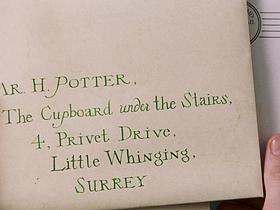 MR. H. POTTER,
The Cupboard under the Stairs,
4, Privet Drive,
Little Whinging,
SURREY